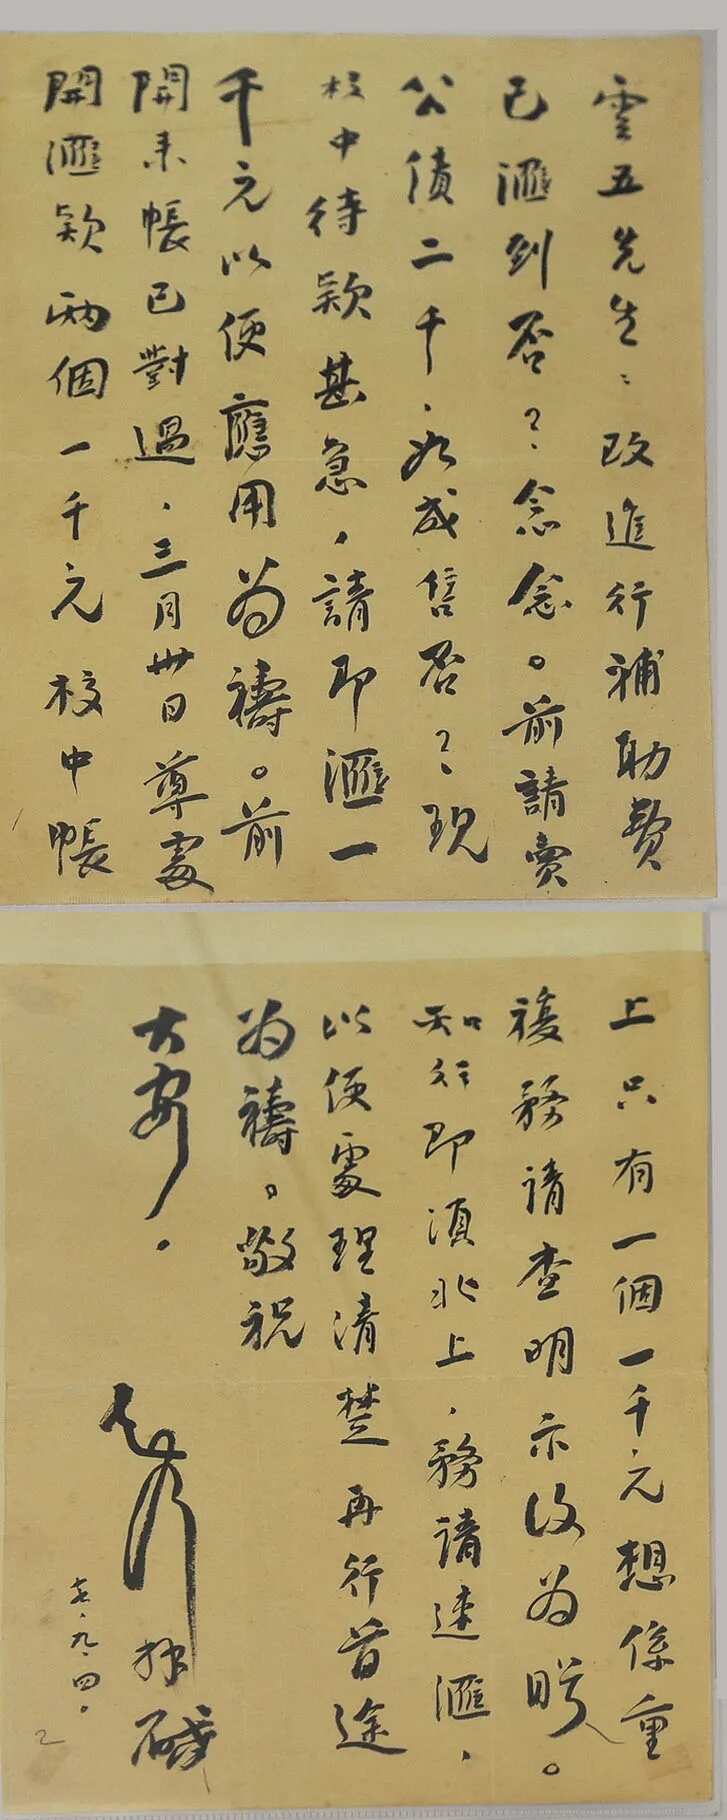 雲五先生：改進行補助費
已滙到否？念念。前請賣
公債二千，为成售否？現
校中待款甚急，請即滙一
千元以便應用為禱。前
開来帳已對過，三月卅日尊處
開滙款兩個一千元校中帳
上只有一個一千元想係重
複務請查明示復为盼。
知行即須北上，務請速滙，
以便處理清楚再行首途
为禱。敬祝
大安。
知行 拜啟
七、九、四。
2